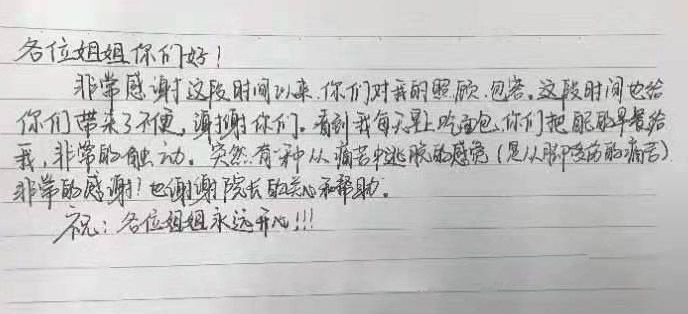 各位姐姐你们好！
非常感谢这段时间以来，你们对我的照顾、包容。这段时间也给
你们带来了不便，谢谢你们。看到我每天早上吃面包，你们把自己的早餐给
我，非常的触动。突然有一种从痛苦中逃脱的感觉（是从脚受伤的痛苦）
非常的感谢！也谢谢院长的关心和帮助。
祝：各位姐姐永远开心!!!